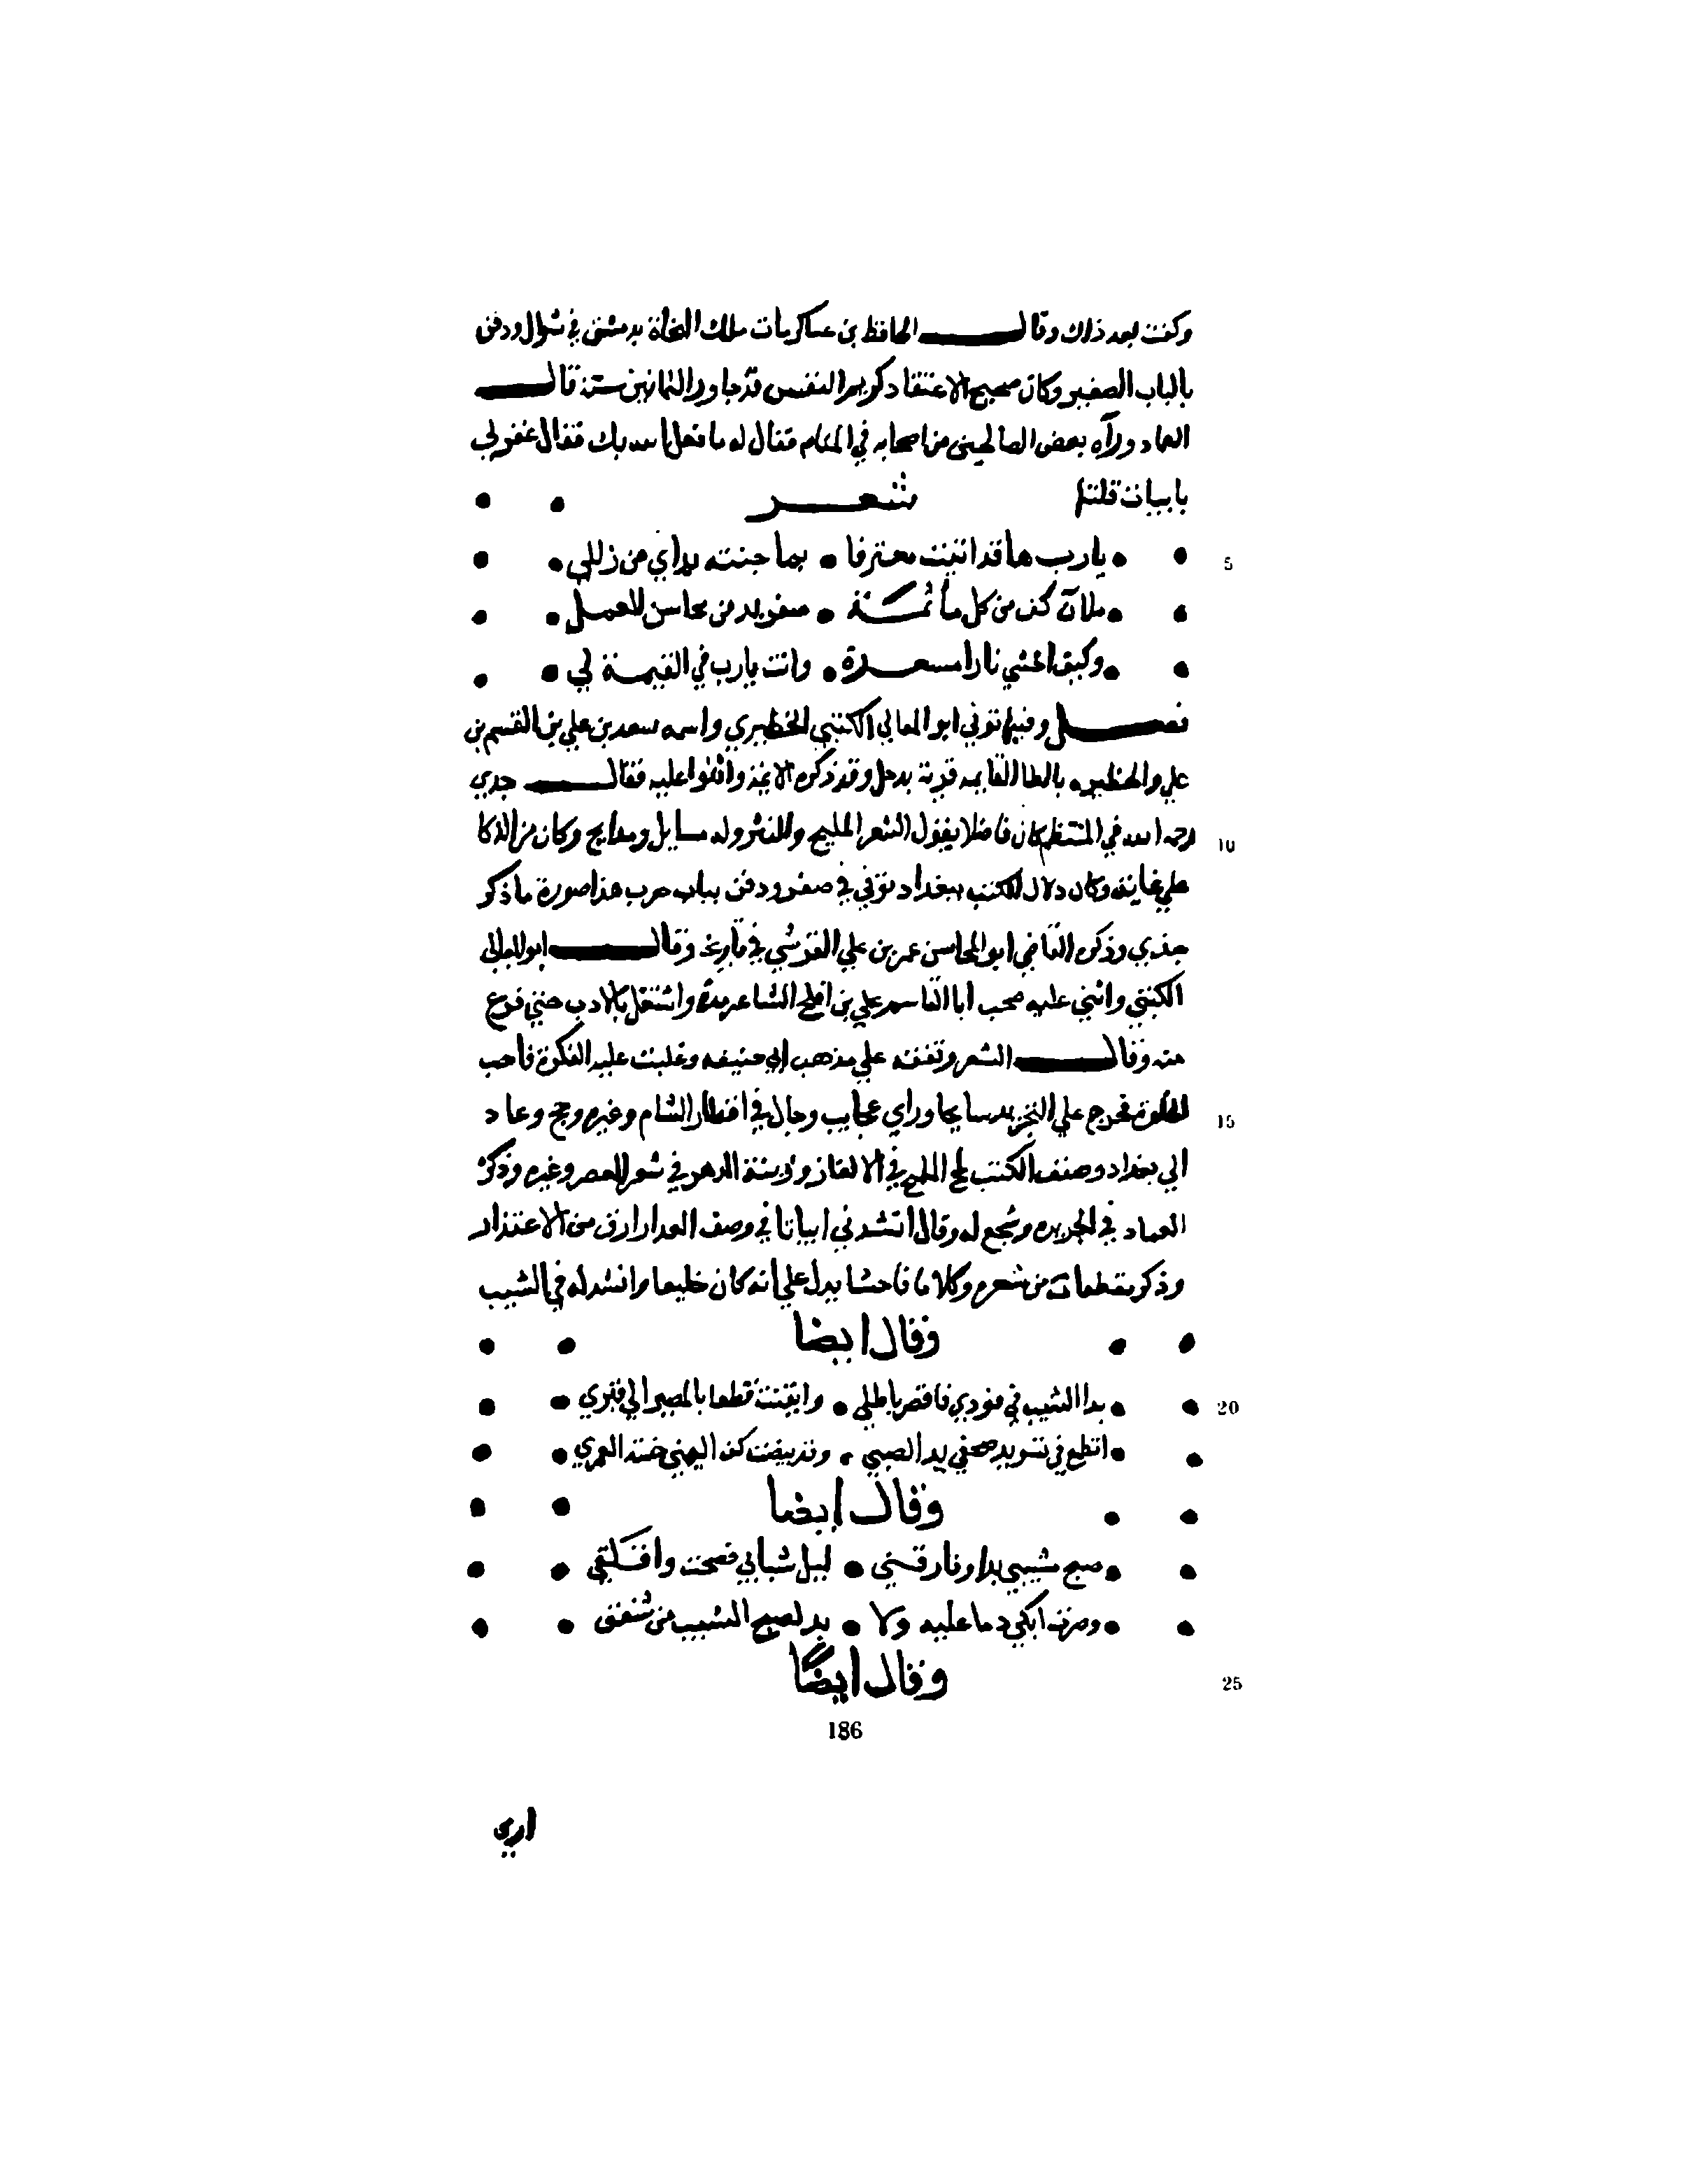 وكفنت بعد ذلك وقال الحافظ بن عساكر مات ملك النحاة بدمشق في شوال ودفن
بالباب الصغير وكان صحيح الاعتقاد كريم النفس قد جاوز الثمانين سنة قال
العماد ورآه بعض الصالحين من اصحابه في المنام فقال له ما فعل الله بك فقال غفر لي
بابيات قلتها شعر
5 يارب ها قد اتيت معترفا • بما جنته يداي من زللي
ملآن كف من كل مأثمة • صفر يد من محاسن العمل
وكيف اخشي نارا مسعرة • وانت يارب في القيمة لي
فصل وفيها توفي ابو المعالي الكتبي الخطيري واسمه سعد بن علي بن القسم بن
علي والحظيره بالظا القايمه قرية بدجيل وقد ذكره الايمة واثنوا عليه فقال جدي
10 رحمه الله في المنتظم كان فاضلا يقول الشعر المليح والنثر وله مسايل ومدايح وكان من الذكا
علي غاية وكان دلال الكتب ببغداد توفي في صفر ودفن بباب حرب هذا صورة ما ذكر
جدي وذكره القاضي ابو المحاسن عمر بن علي القرشي في تاريخه وقال ابو المعالي
الكتبي واثني عليه صحب ابا القاسم علي بن افلح الشاعر مدة واشتغل بالادب حتي فرع
منه وقال الشعر وتفقه علي مذهب ابي حنيفه وغلبت عليه الفكرة فاحب
15 الخلوة فخرج علي التجريد سايحا وراي عجايب وجال في اقطار الشام وغيره وحج وعاد
الي بغداد وصنف الكتب لمح الملح في الالغاز وزينة الدهر في شعرا العصر وغيره وذكره
العماد في الخريده وشجع له وقال انشدني ابياتا في وصف العدار ارق من الاعتذار
وذكر مقطعات من شعره وكلاما فاحشا يدل علي انه كان خليعا وانشد له في الشيب
وقال ايضا
20 بدا الشيب في فودي فاقصر باطلي • وايقنت قطعا بالمصير الي قبري
اتطمع في تسويد صحفي يد الصبي • وقد بيضت كف النهي العمري
وقال ايضا
صبح مشيبي بدا وفارقني • ليل شبابي فصحت واقلقي
وصرت ابكي دما عليه ولا • بد لصبح المشيب من شفق
25 وقال ايضًا
186
اري